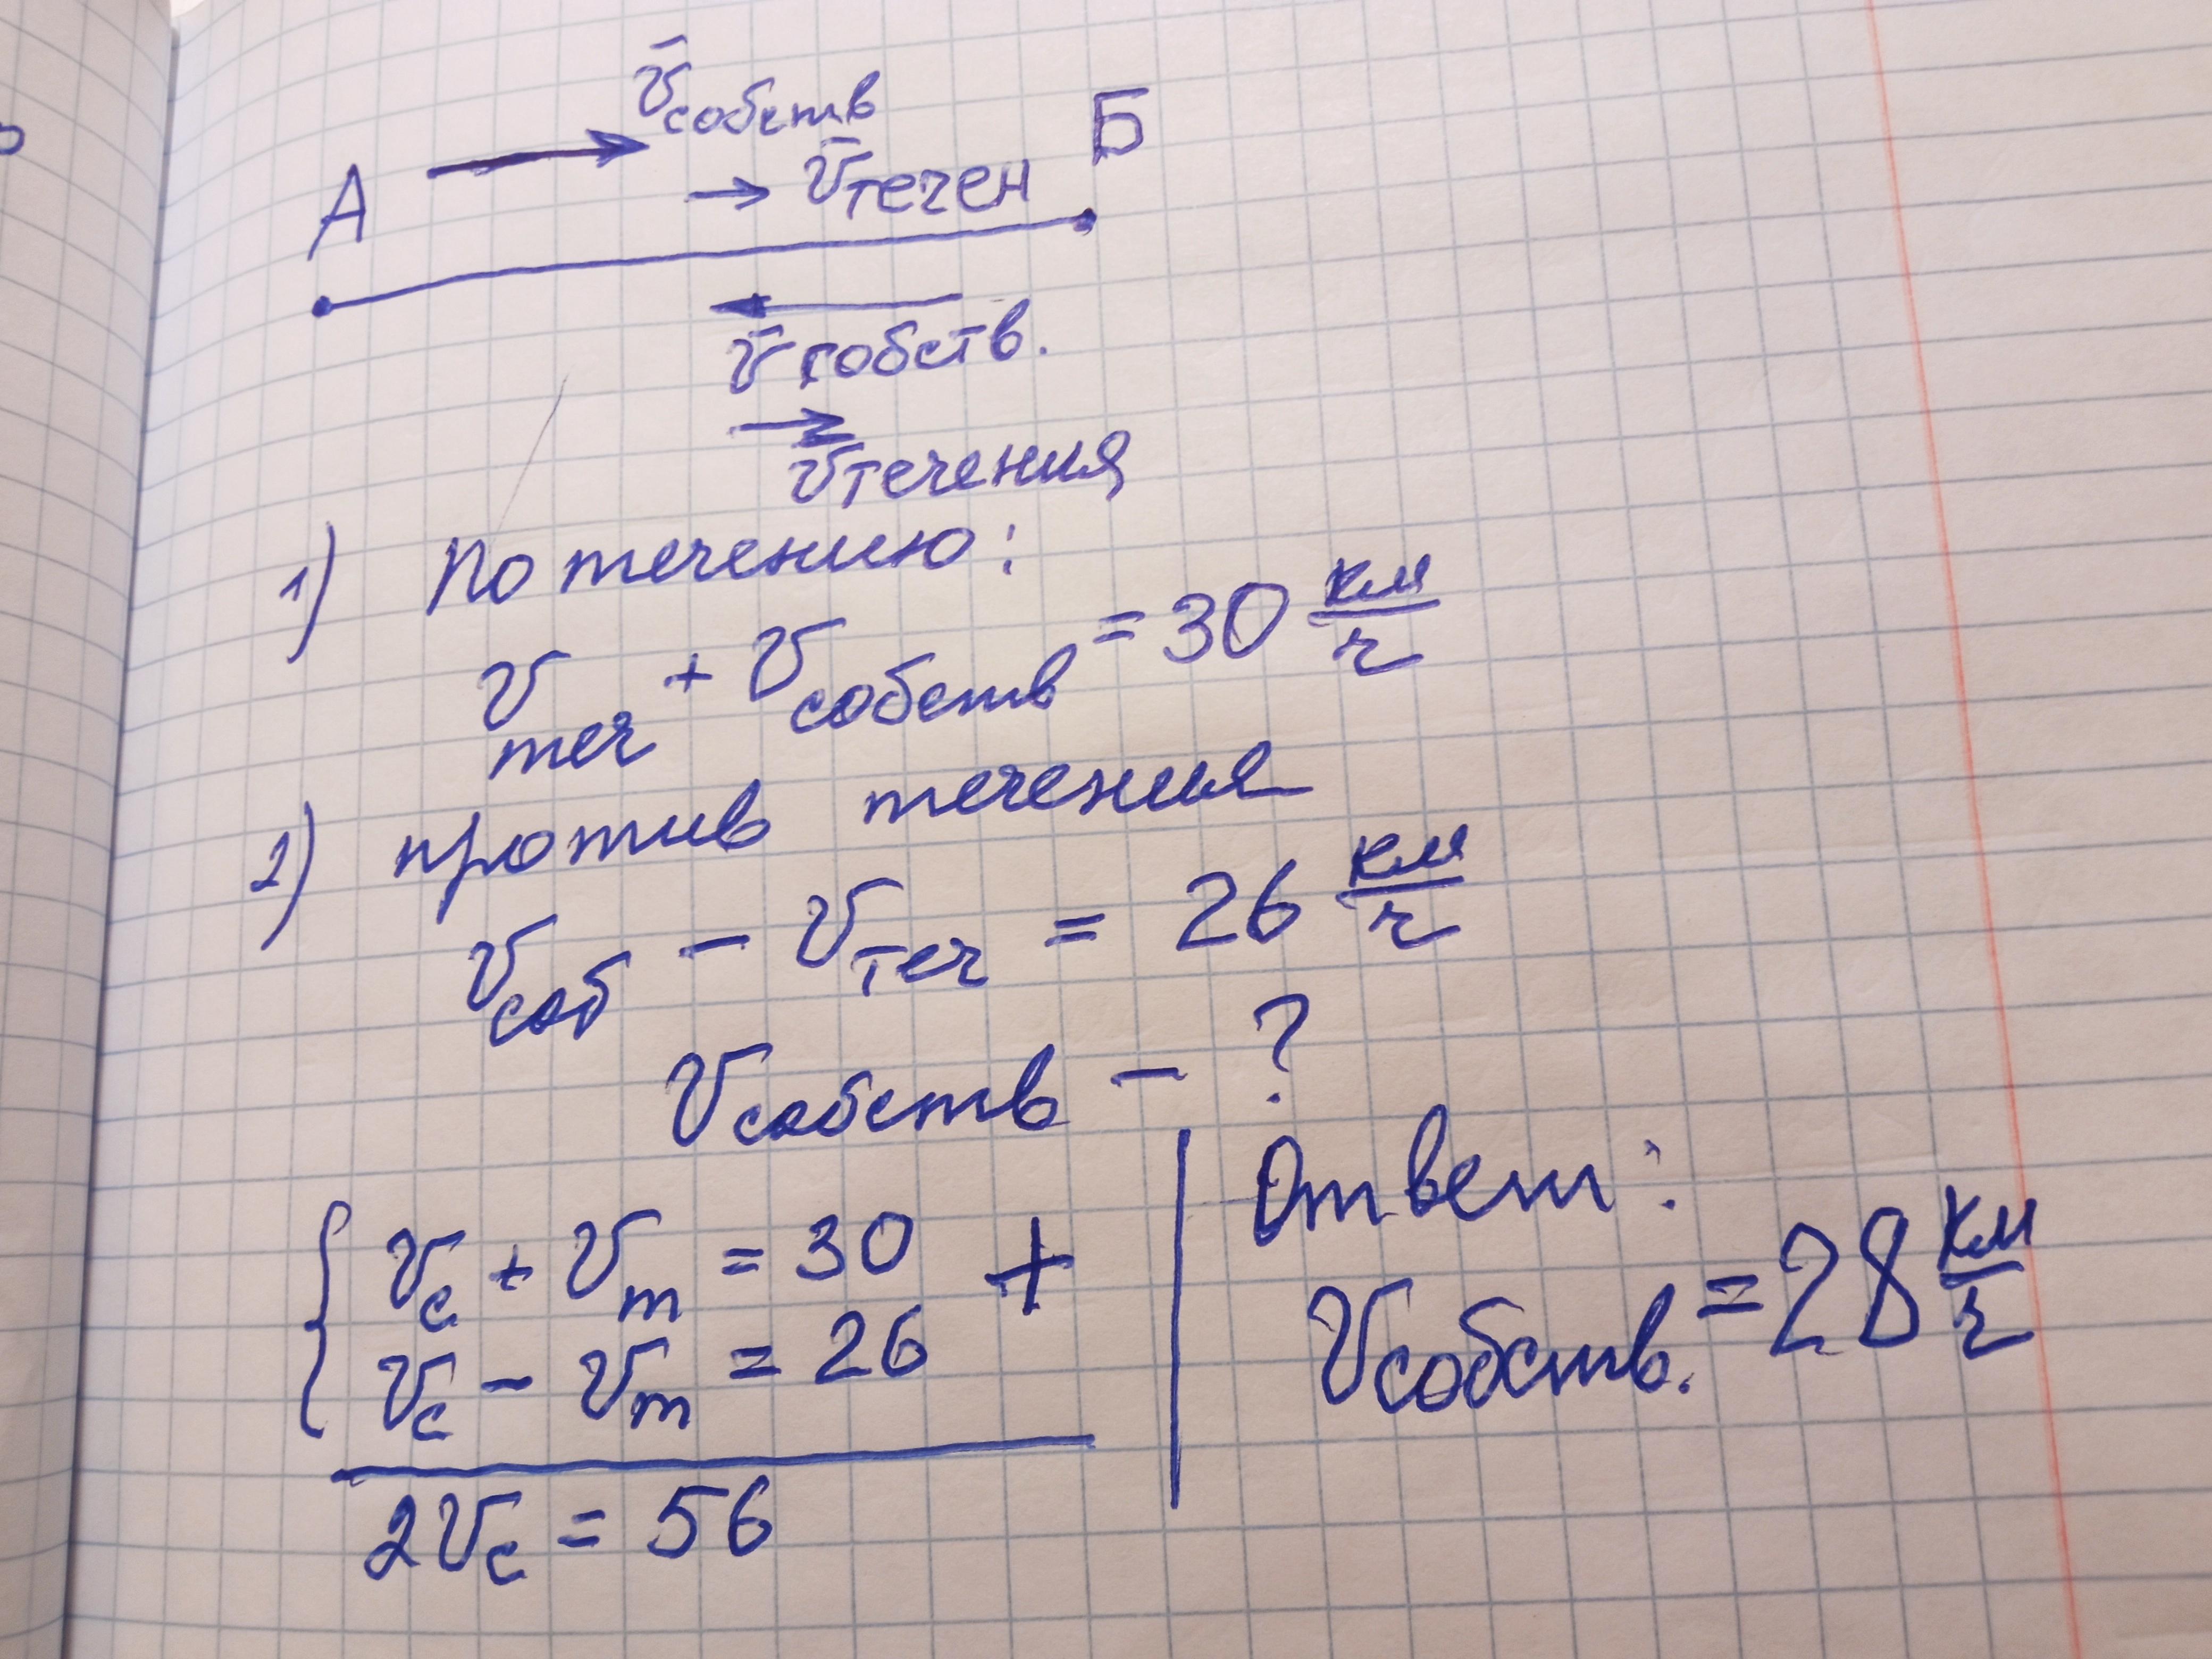 v̄собств
А
Б
v̄течен
v̄собств.
v̄течения
1) По течению:
vтеч + vсобств = 30 км/ч
2) против течения
vсоб − vтеч = 26 км/ч
vсобств − ?
{ vс + vт = 30 +
vс − vт = 26
2vс = 56
Ответ:
vсобств. = 28 км/ч